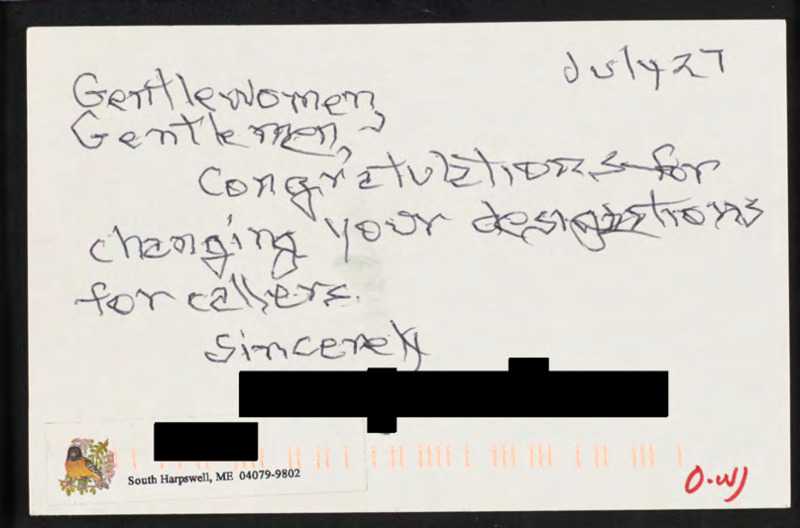 July 27
Gentlewomen,
Gentlemen,
Congratulations for
changing your designations
for callers.
Sincerely
South Harpswell, ME 04079-9802